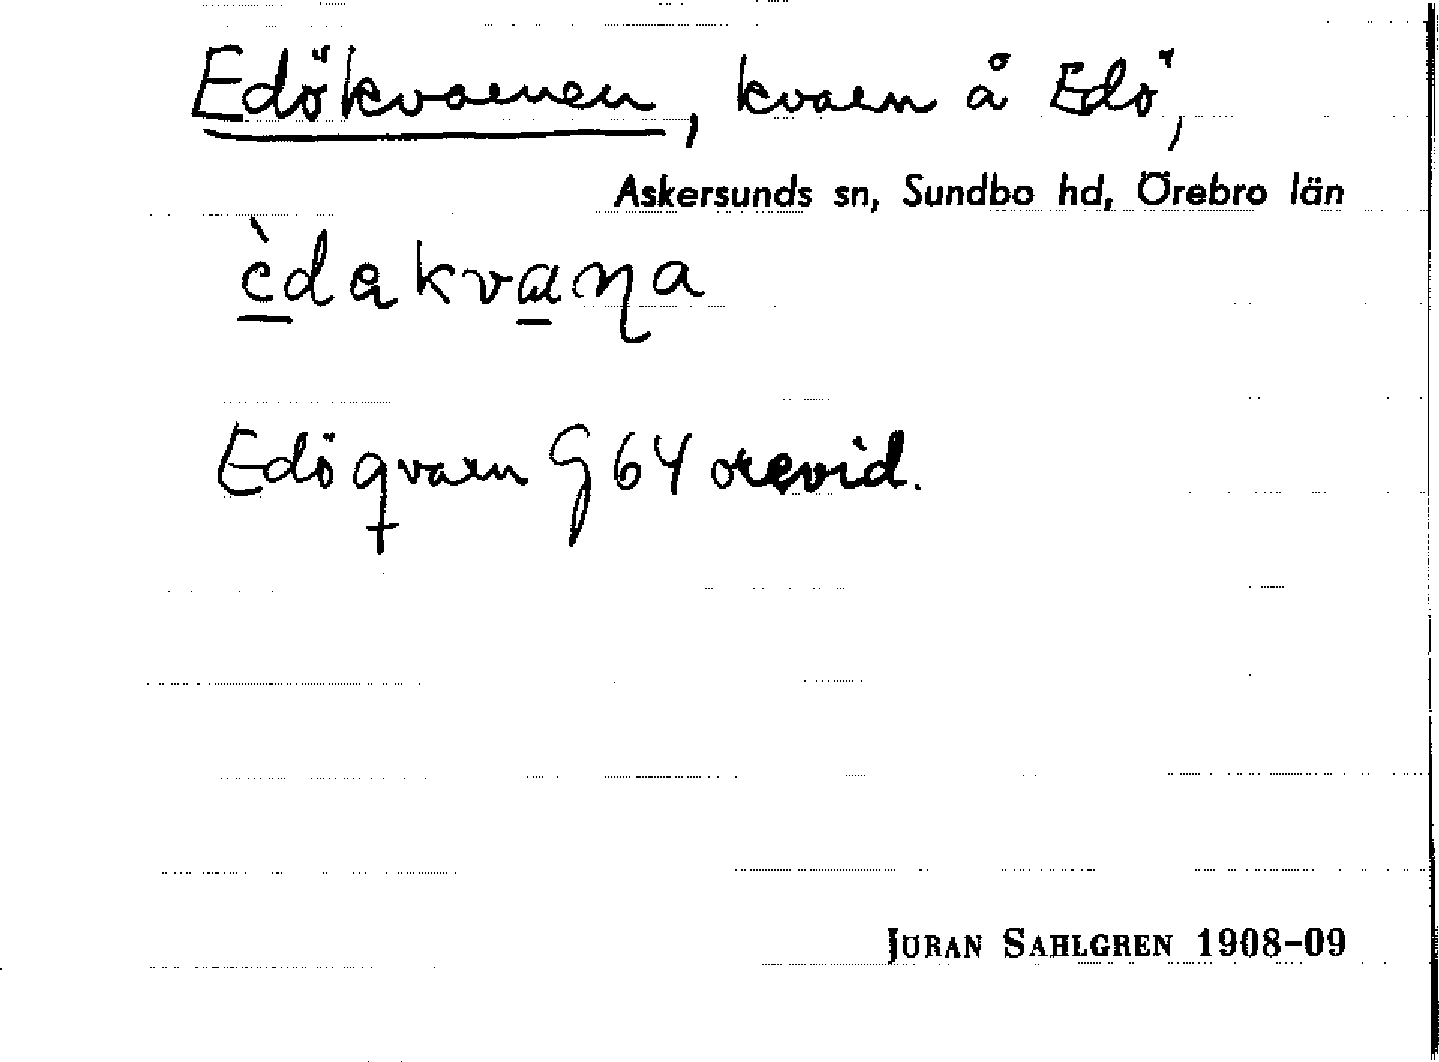 Edökvaenen, kvaen å Edö,
Askersunds sn, Sundbo hd, Örebro län
Edöqvaen G 64 orevid.
JÖRAN SAHLGREN 1908-09